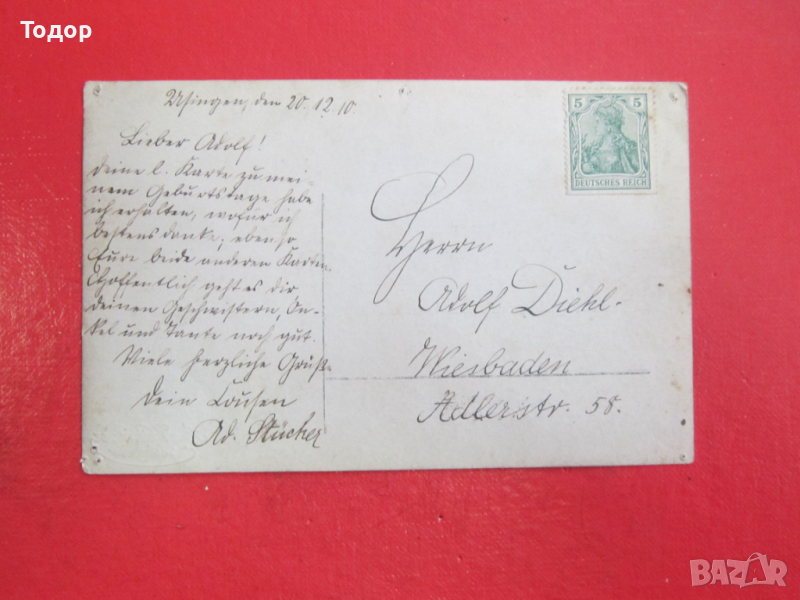 Тодор
Usingen, den 20.12.10.
Lieber Adolf!
Deine l. Karte zu mei-
nem Geburtstage habe
ich erhalten, wofür ich
bestens danke, ebenso
Eure beide anderen Karten.
Hoffentlich geht es dir
deinen Geschwistern, On-
kel und Tante noch gut.
Viele herzliche Grüße
Dein Cousen
Ad.
5 5
DEUTSCHES REICH
Herrn
Adolf Diehl.
Wiesbaden
Adlerstr. 58.
BAZAR